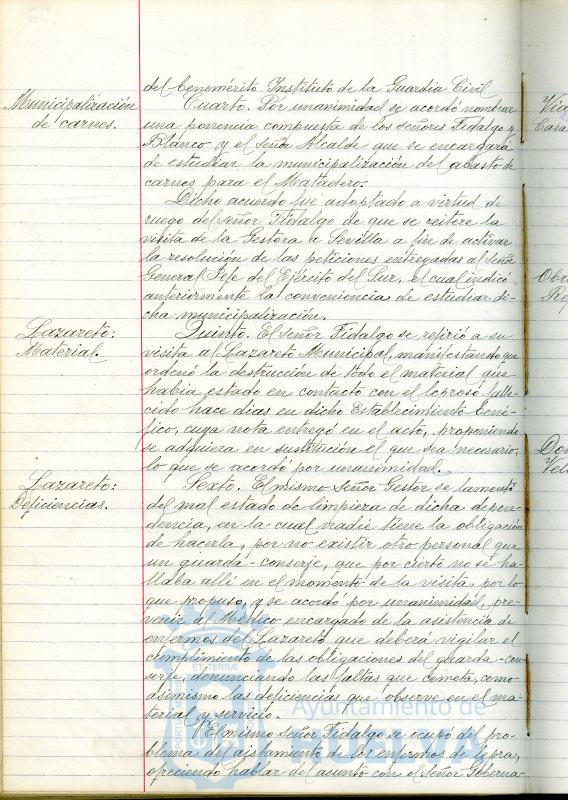 del benemérito Instituto de la Guardia Civil
Municipalización
de carnes.
Cuarto. Por unanimidad se acordó nombrar
una ponencia compuesta de los señores Fidalgo y
Blanco y el señor Alcalde que se encargará
de estudiar la municipalización del abasto de
carnes para el Matadero.
Dicho acuerdo fue adoptado a virtud de
ruego del señor Fidalgo de que se reitere la
visita de la Gestora a Sevilla a fin de activar
la resolución de las peticiones entregadas al señor
General Jefe del Ejército del Sur, el cual indicó
anteriormente la conveniencia de estudiar di-
cha municipalización.
Lazareto:
Material.
Quinto. El señor Fidalgo se refirió a su
visita al Lazareto Municipal, manifestando que
ordenó la destrucción de todo el material que
había estado en contacto con el leproso falle-
cido hace días en dicho Establecimiento bené-
fico, cuya nota entregó en el acto, proponiendo
se adquiera en sustitución el que sea necesario,
lo que se acordó por unanimidad.
Lazareto:
Deficiencias.
Sexto. El mismo señor Gestor se lamentó
del mal estado de limpieza de dicha depen-
dencia, en la cual nadie tiene la obligación
de hacerla, por no existir otro personal que
un guarda-conserje, que por cierto no se ha-
llaba allí en el momento de la visita, por lo
que propuso, y se acordó por unanimidad, pre-
venir al Médico encargado de la asistencia de
enfermos del Lazareto que deberá vigilar el
cumplimiento de las obligaciones del guarda-con-
serje, denunciando las faltas que cometa, como
asimismo las deficiencias que observe en el ma-
terial y servicio.
El mismo señor Fidalgo se ocupó del pro-
blema del aislamiento de los enfermos de lepra,
ofreciendo hablar del asunto con el señor Goberna-
Ayuntamiento de
ET TERRAE
Casa
Obr
Re
Do